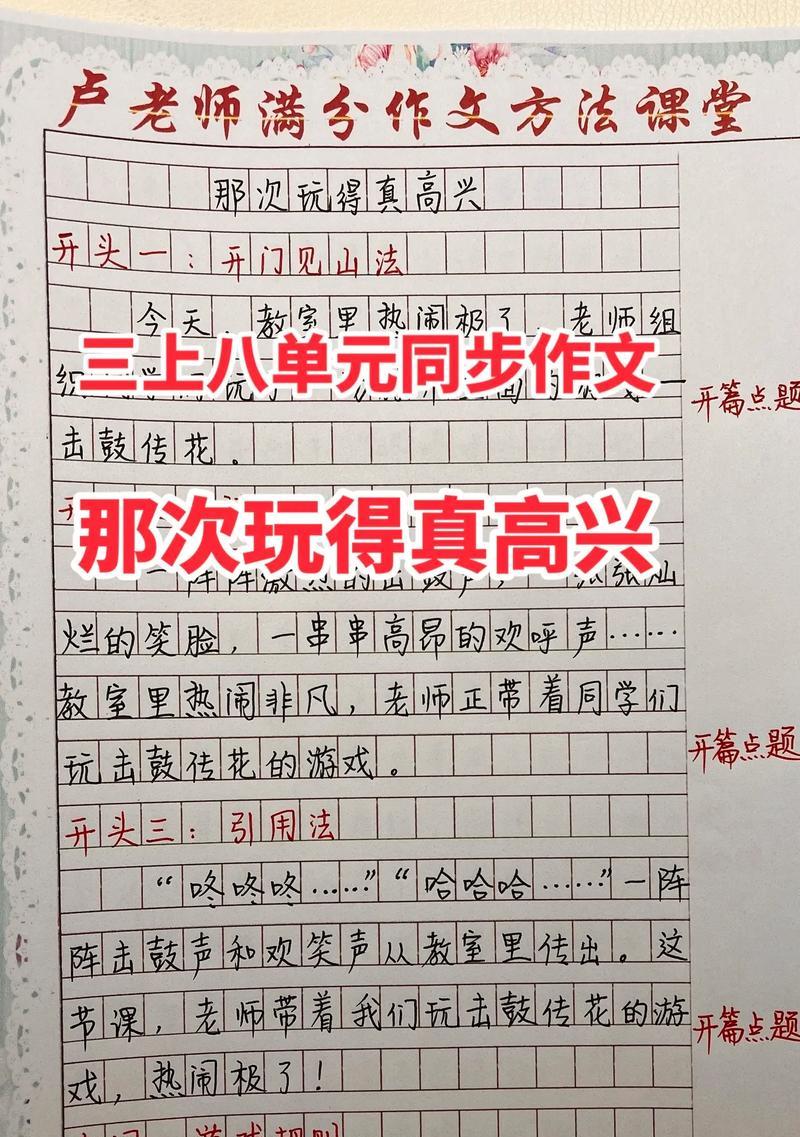 卢老师满分作文方法课堂
那次玩得真高兴
开头一：开门见山法
今天，教室里热闹极了，老师组
三上八单元同步作文
开篇点题
击鼓传花。
那次玩得真高兴
烂的笑脸，一串串高昂的欢呼声……
教室里热闹非凡，老师正带着同学们
开篇点题
玩击鼓传花的游戏。
开头三：引用法
“咚咚咚……”“哈哈哈……”一阵
阵击鼓声和欢笑声从教室里传出。这
节课，老师带着我们玩击鼓传花的游
开篇点题
戏，热闹极了！